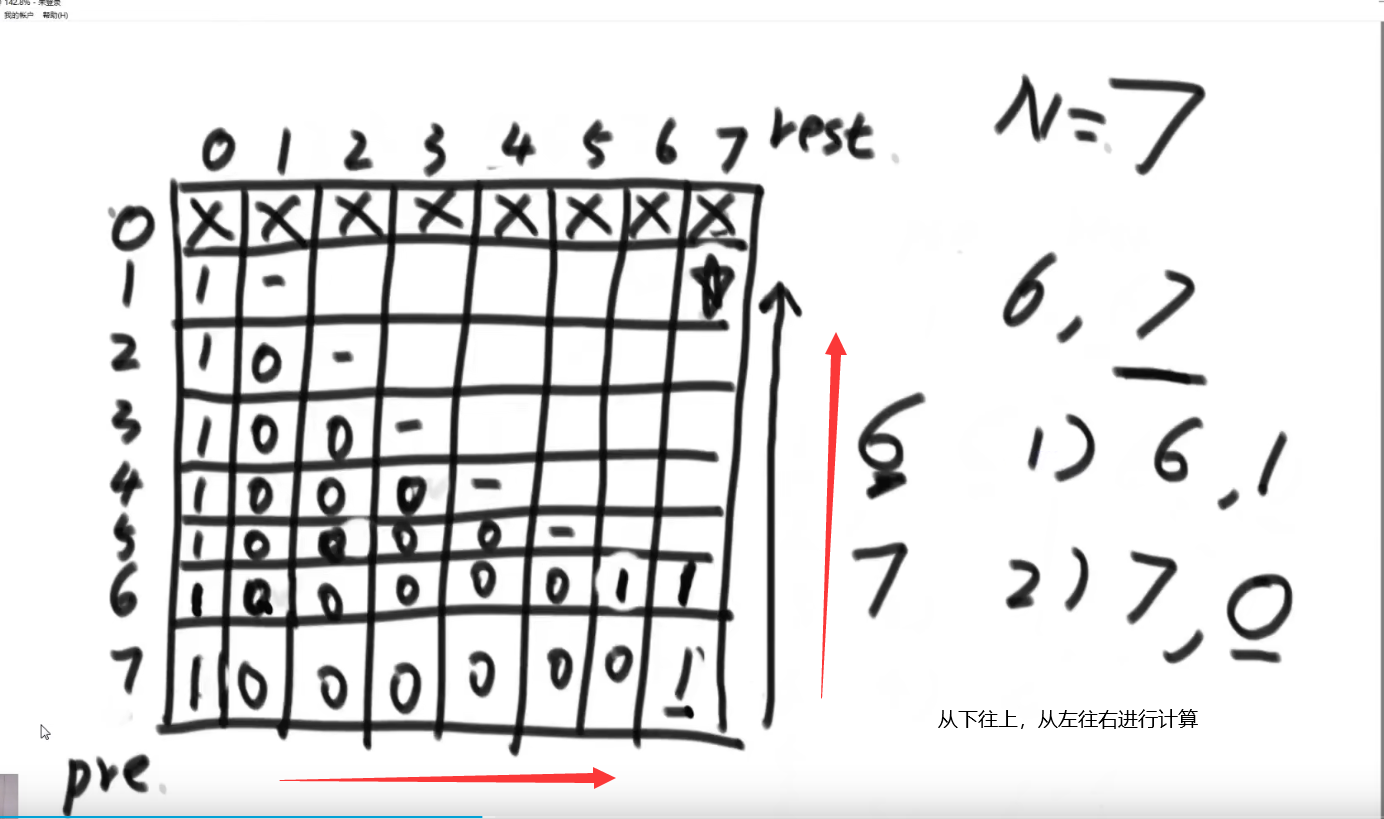 142.8% - 未登录
我的帐户 帮助(H)
0 1 2 3 4 5 6 7 rest.
N=7
0 X X X X X X X X
1 1 -
2 1 0 -
3 1 0 0 -
4 1 0 0 0 -
5 1 0 0 0 0 -
6 1 0 0 0 0 0 1 1
7 1 0 0 0 0 0 0 1
pre.
6, 7
6 1) 6, 1
7 2) 7, 0
从下往上，从左往右进行计算